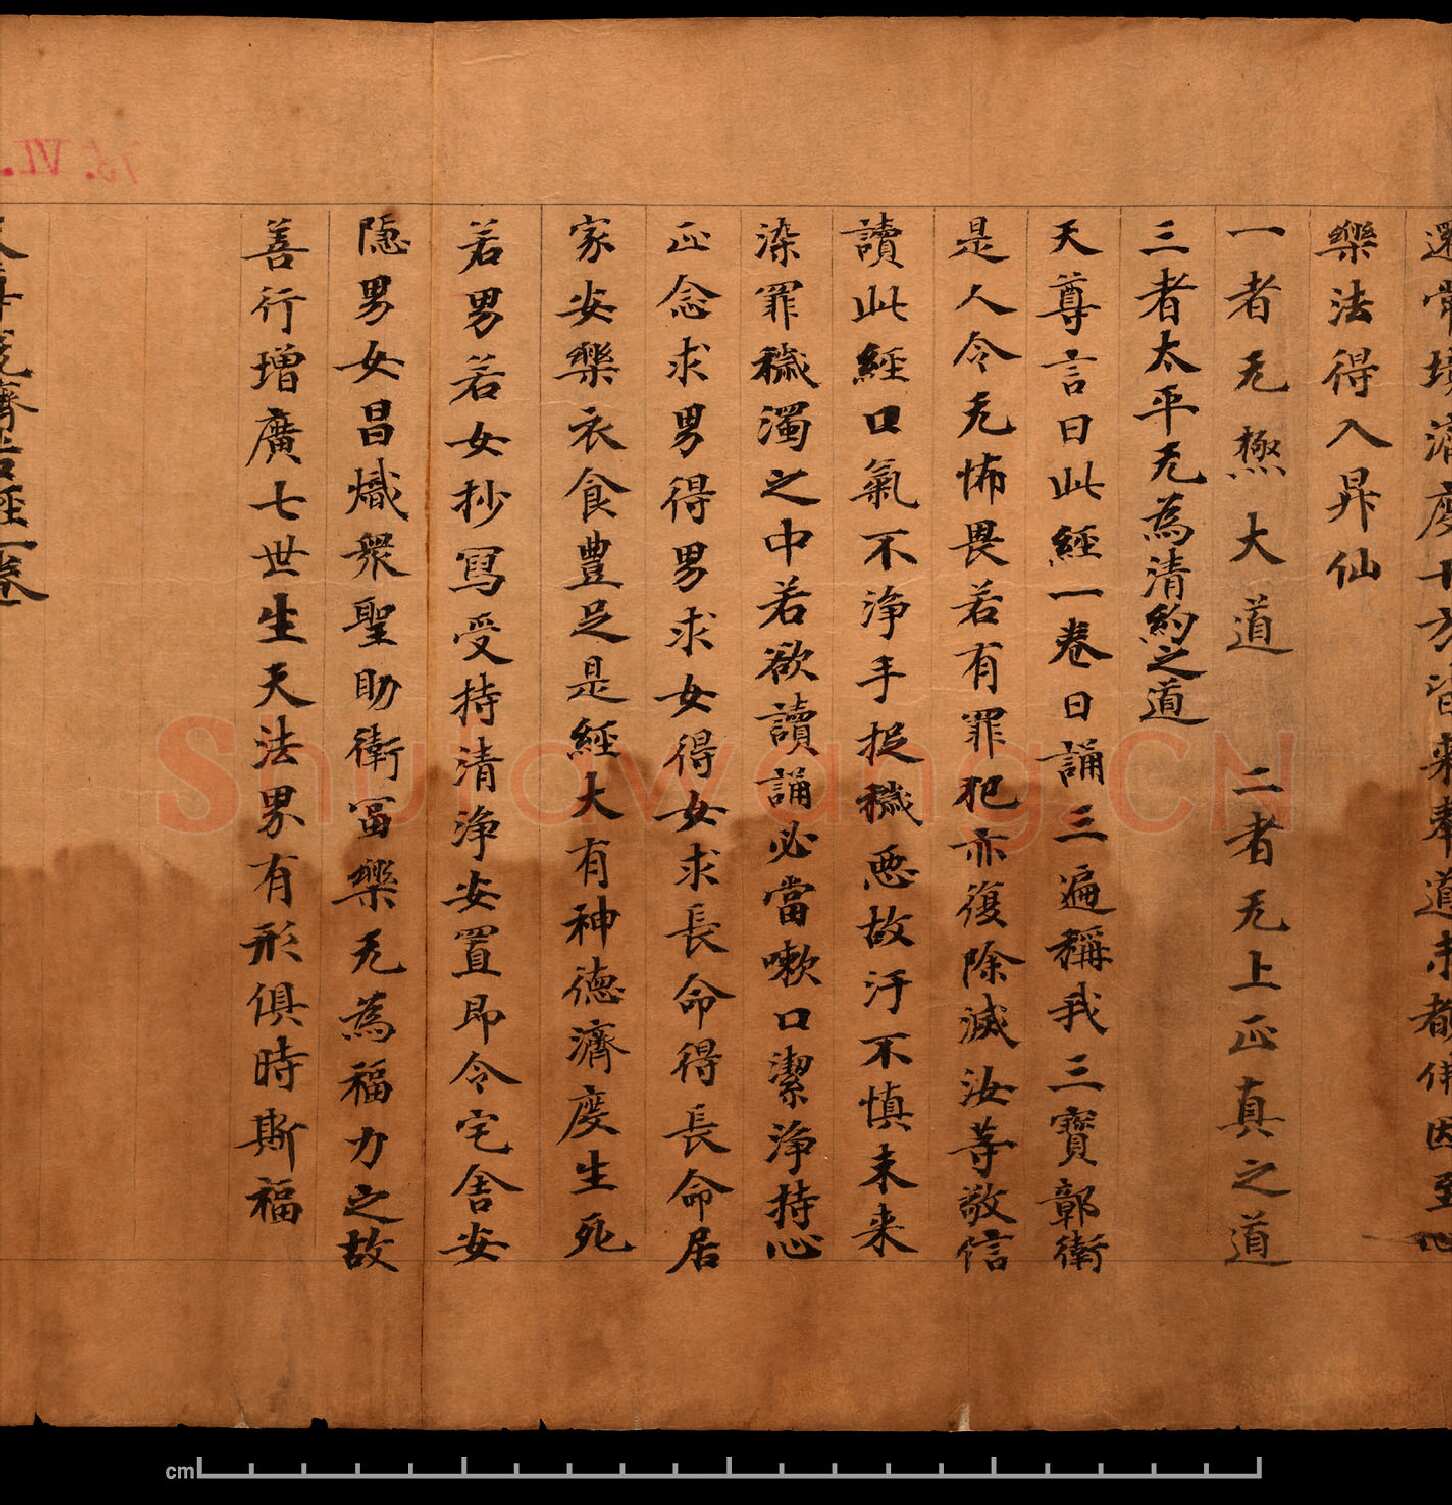 還骨墳濟度十方皆来奉道未都伻因至心
樂法得入昇仙
一者无極大道 二者无上正真之道
三者太平无為清約之道
天尊言曰此經一卷日誦三遍稱我三寶鄣衛
是人令无怖畏若有罪犯亦復除滅汝等敬信
讀此經口氣不淨手捉穢惡故汙不慎未来
染罪穢濁之中若欲讀誦必當嗽口潔淨持心
正念求男得男求女得女求長命得長命居
家安樂衣食豊足是經大有神德濟度生死
若男若女抄寫受持清淨安置即令宅舍安
隱男女昌熾衆聖助衛冨樂无為福力之故
善行增廣七世生天法界有形俱時斯福
濟苦經一卷
15. VI.
Shutowang.CN
cm